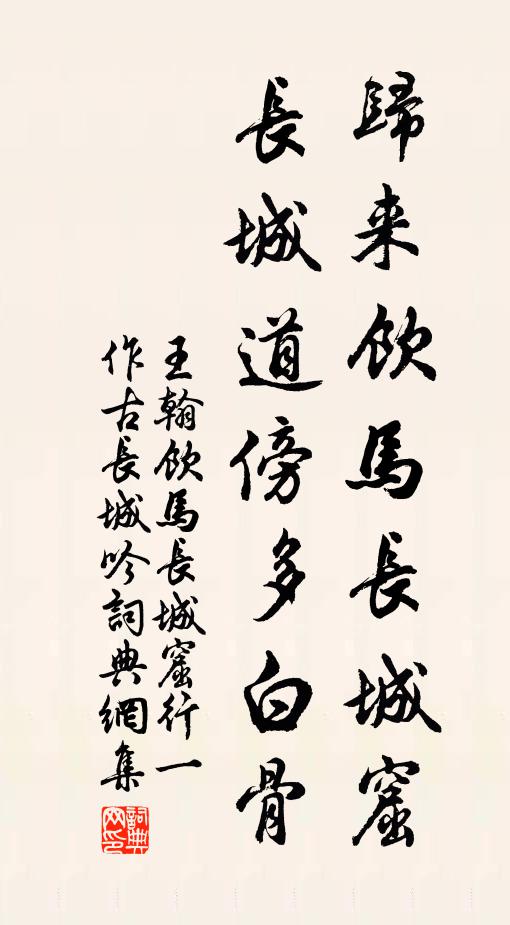 歸来飲馬長城窟
長城道傍多白骨
王翰飲馬長城窟行一
作古長城吟詞典網集
詞典网印